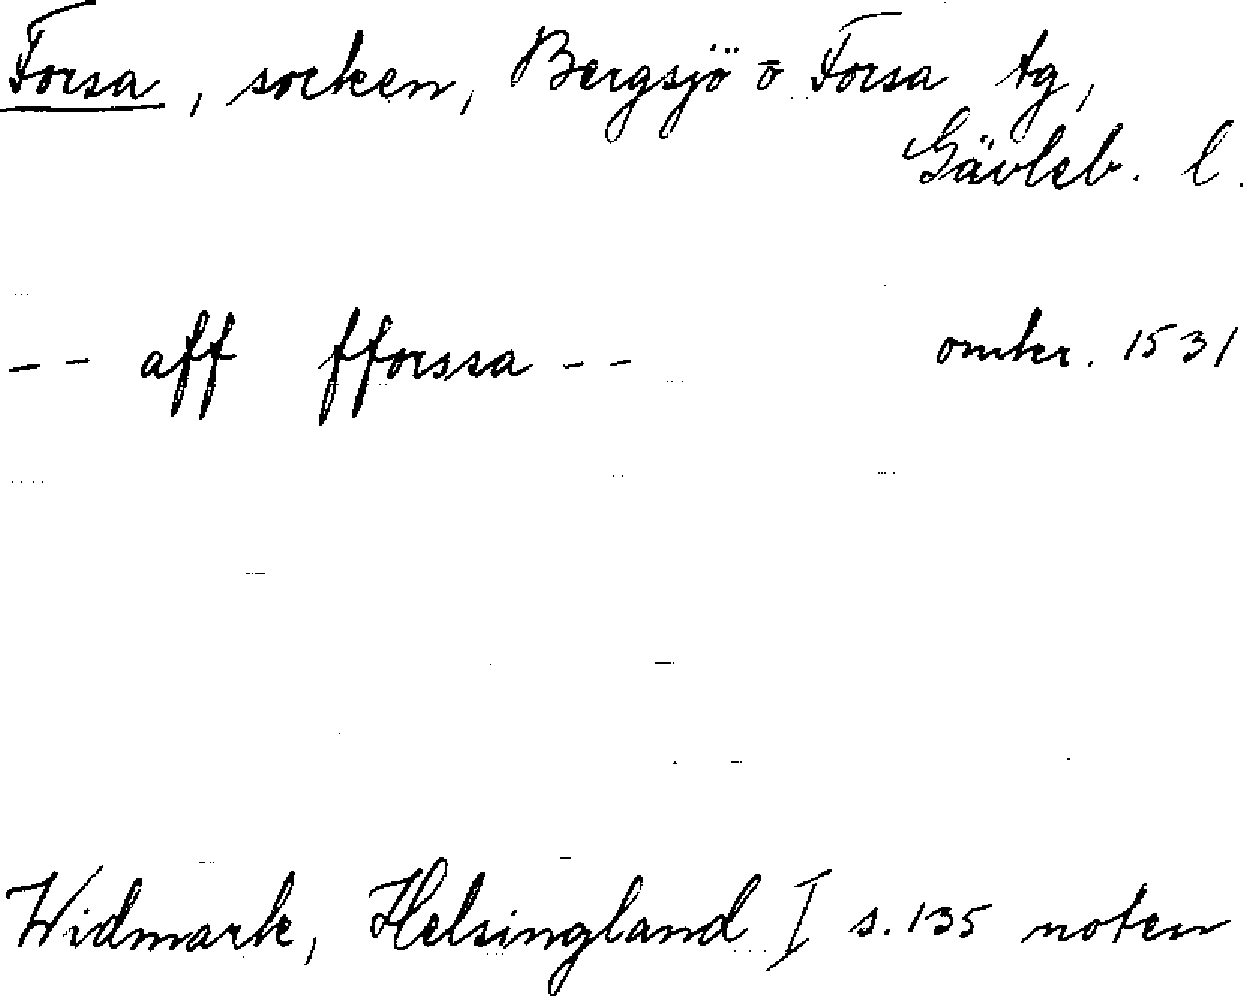 Forsa, socken, Bergsjö o Forsa tg,
Gävleb. l.
-- aff fforssa -- omkr. 1531
Widmark, Helsingland I s. 135 noten